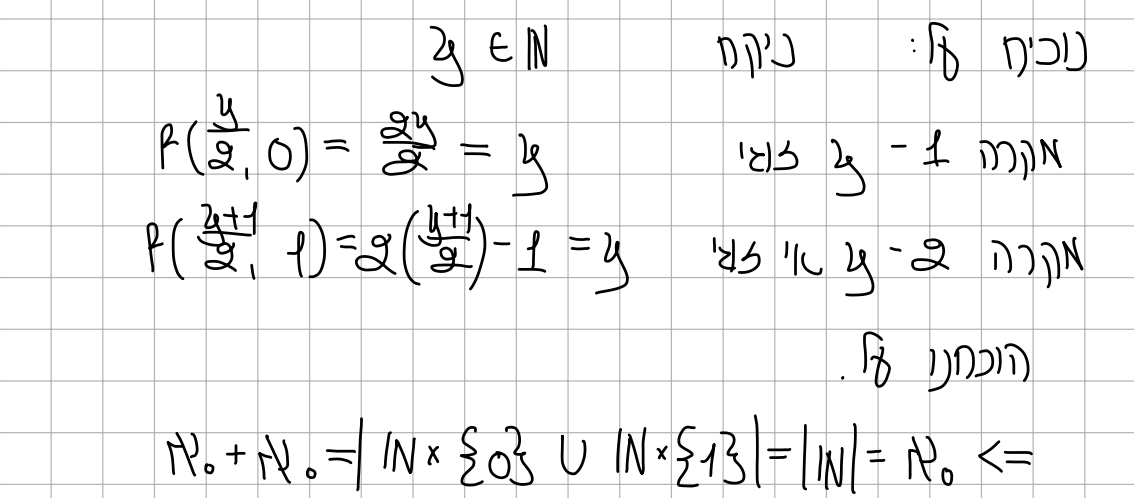 נוכיח על: ניקח y ∈ ℕ
מקרה 1 - y זוגי f(y/2, 0) = 2y/2 = y
מקרה 2 - y אי זוגי f((y+1)/2, 1) = 2((y+1)/2) - 1 = y
הוכחנו על.
ℵ₀ + ℵ₀ = |ℕ × {0} ∪ ℕ × {1}| = |ℕ| = ℵ₀ <=